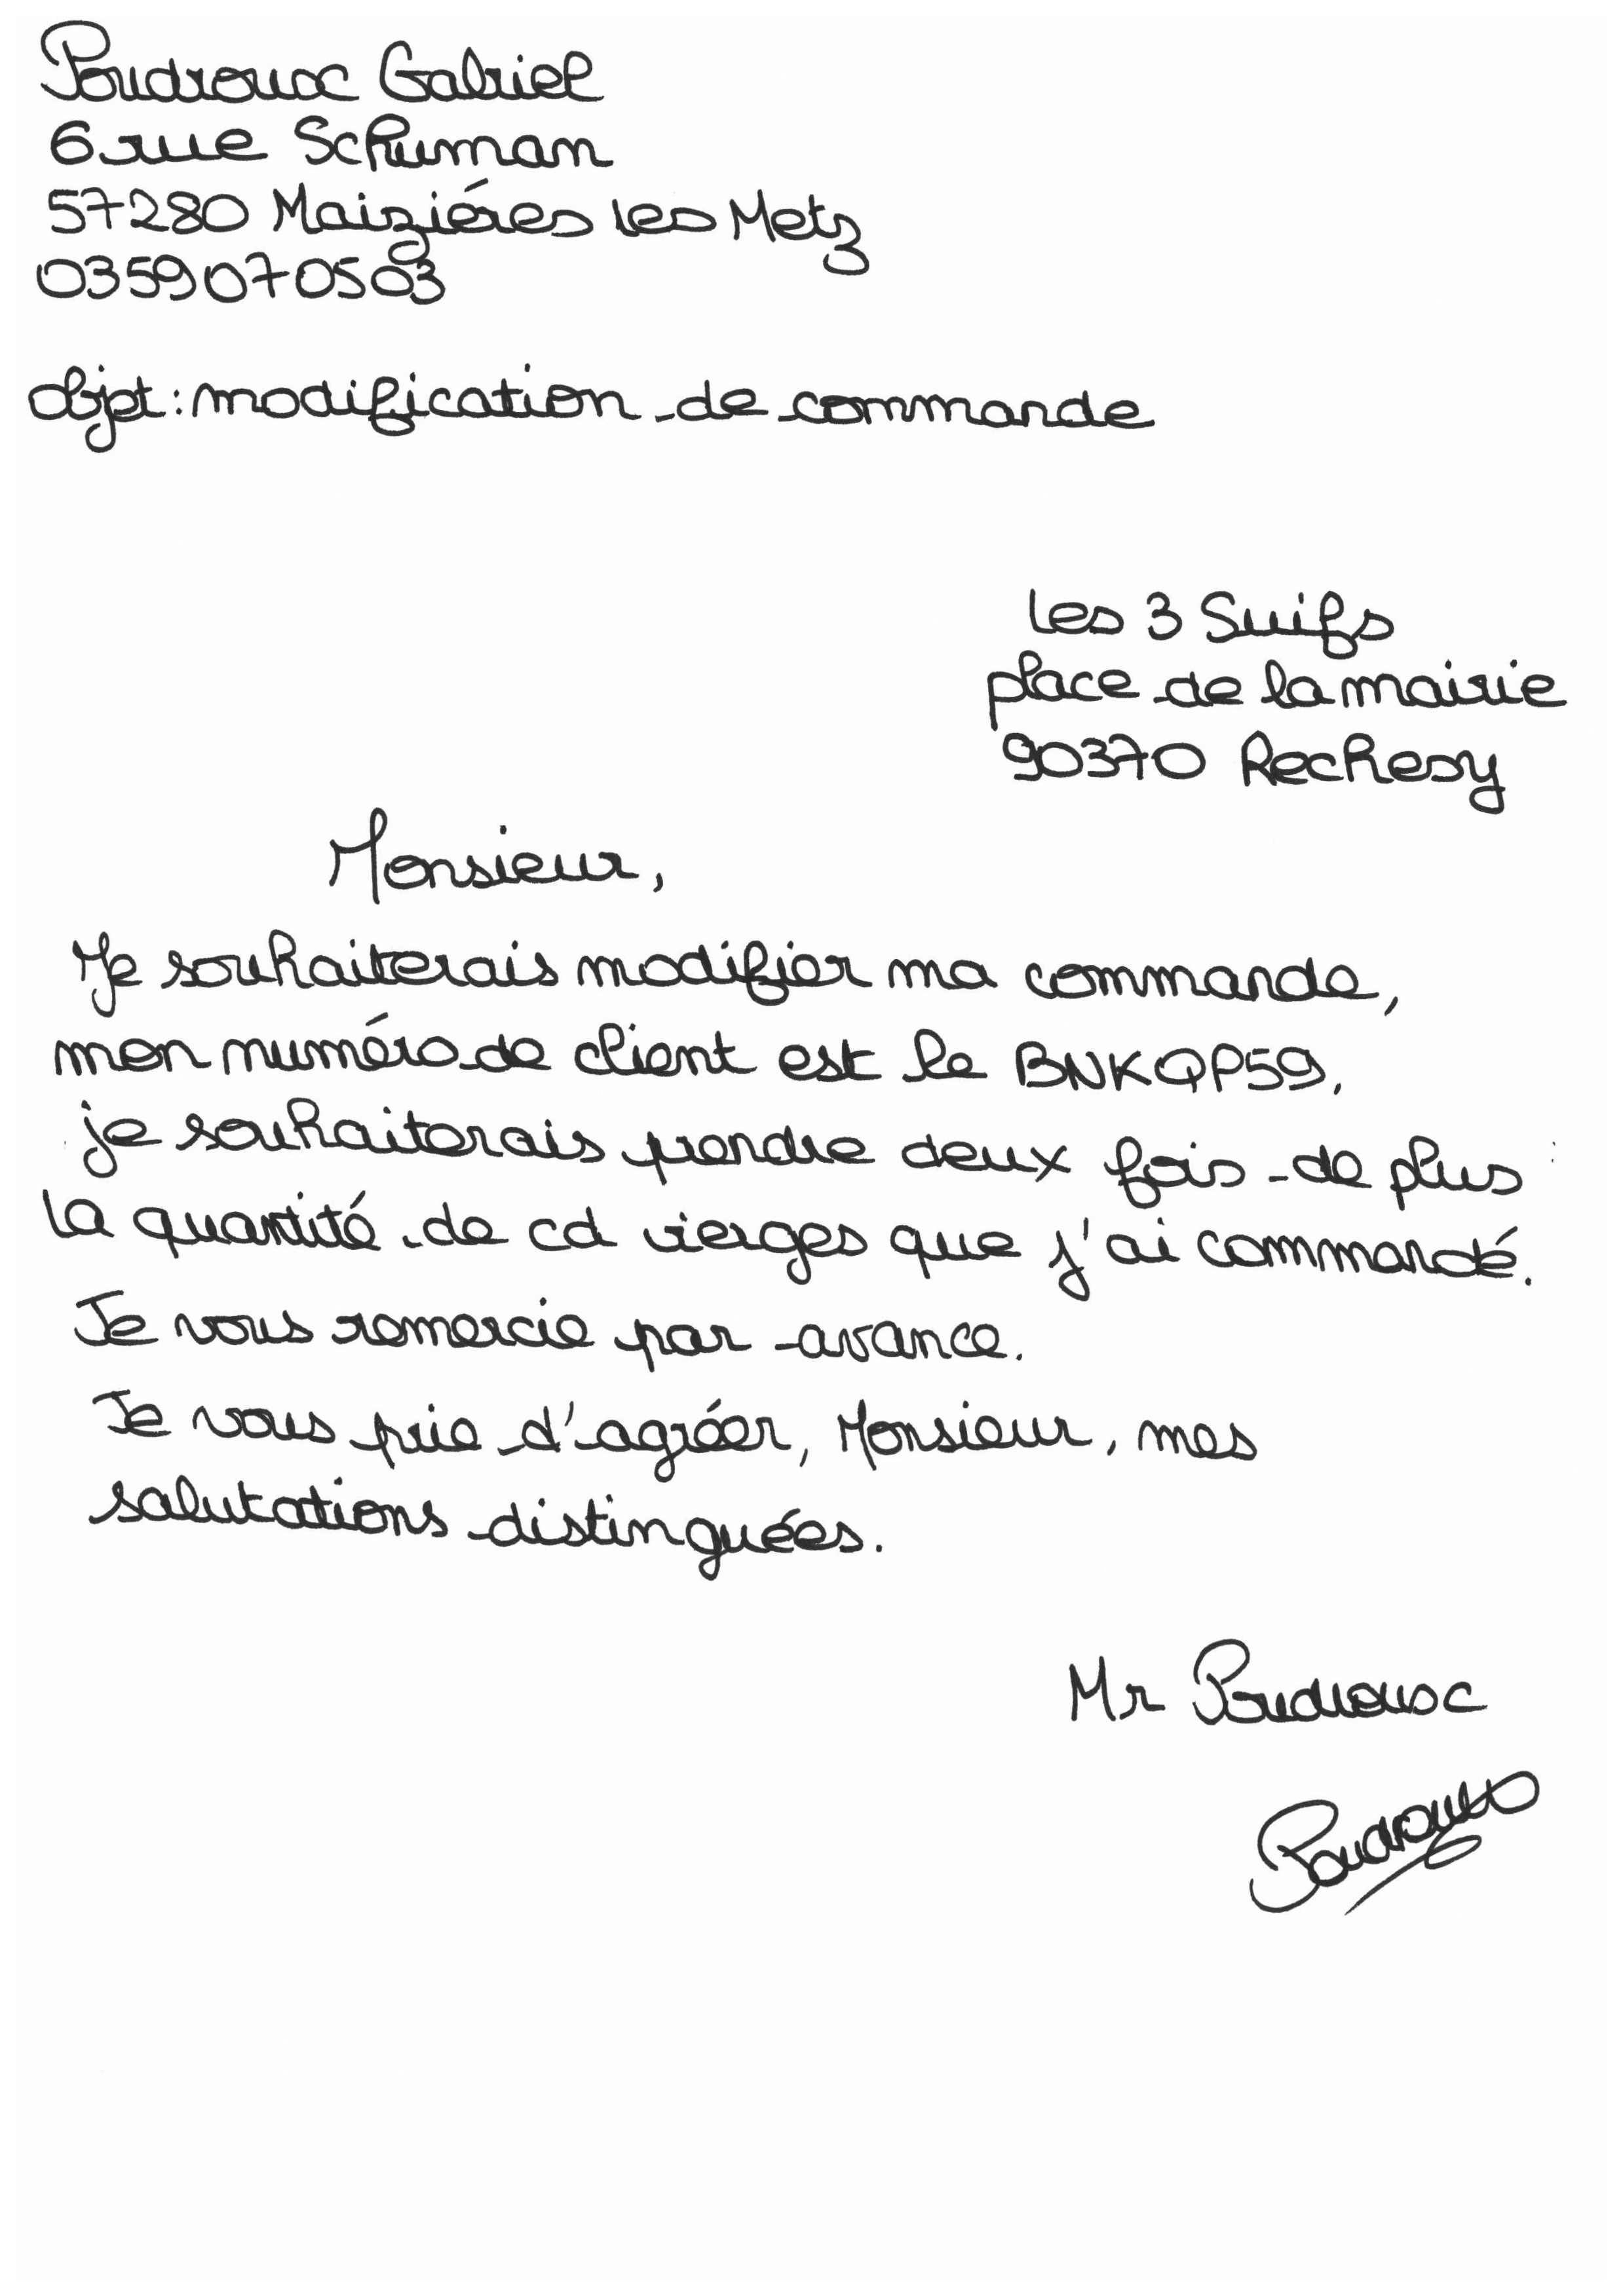 Poudroux Gabriel
6 rue Schuman
57280 Maiziéres les Metz
0359070503
objet : modification de commande
Les 3 Suifs
place de la mairie
90370 Rechesy
Monsieur,
Je souhaiterais modifier ma commande,
mon numéro de client est le BNKQP59.
je souhaiterais prendre deux fois de plus
la quantité de cd vierges que j'ai commandé.
Je vous remercie par avance.
Je vous prie d'agréer, Monsieur, mes
salutations distinguées.
Mr Poudroux
Poudroux